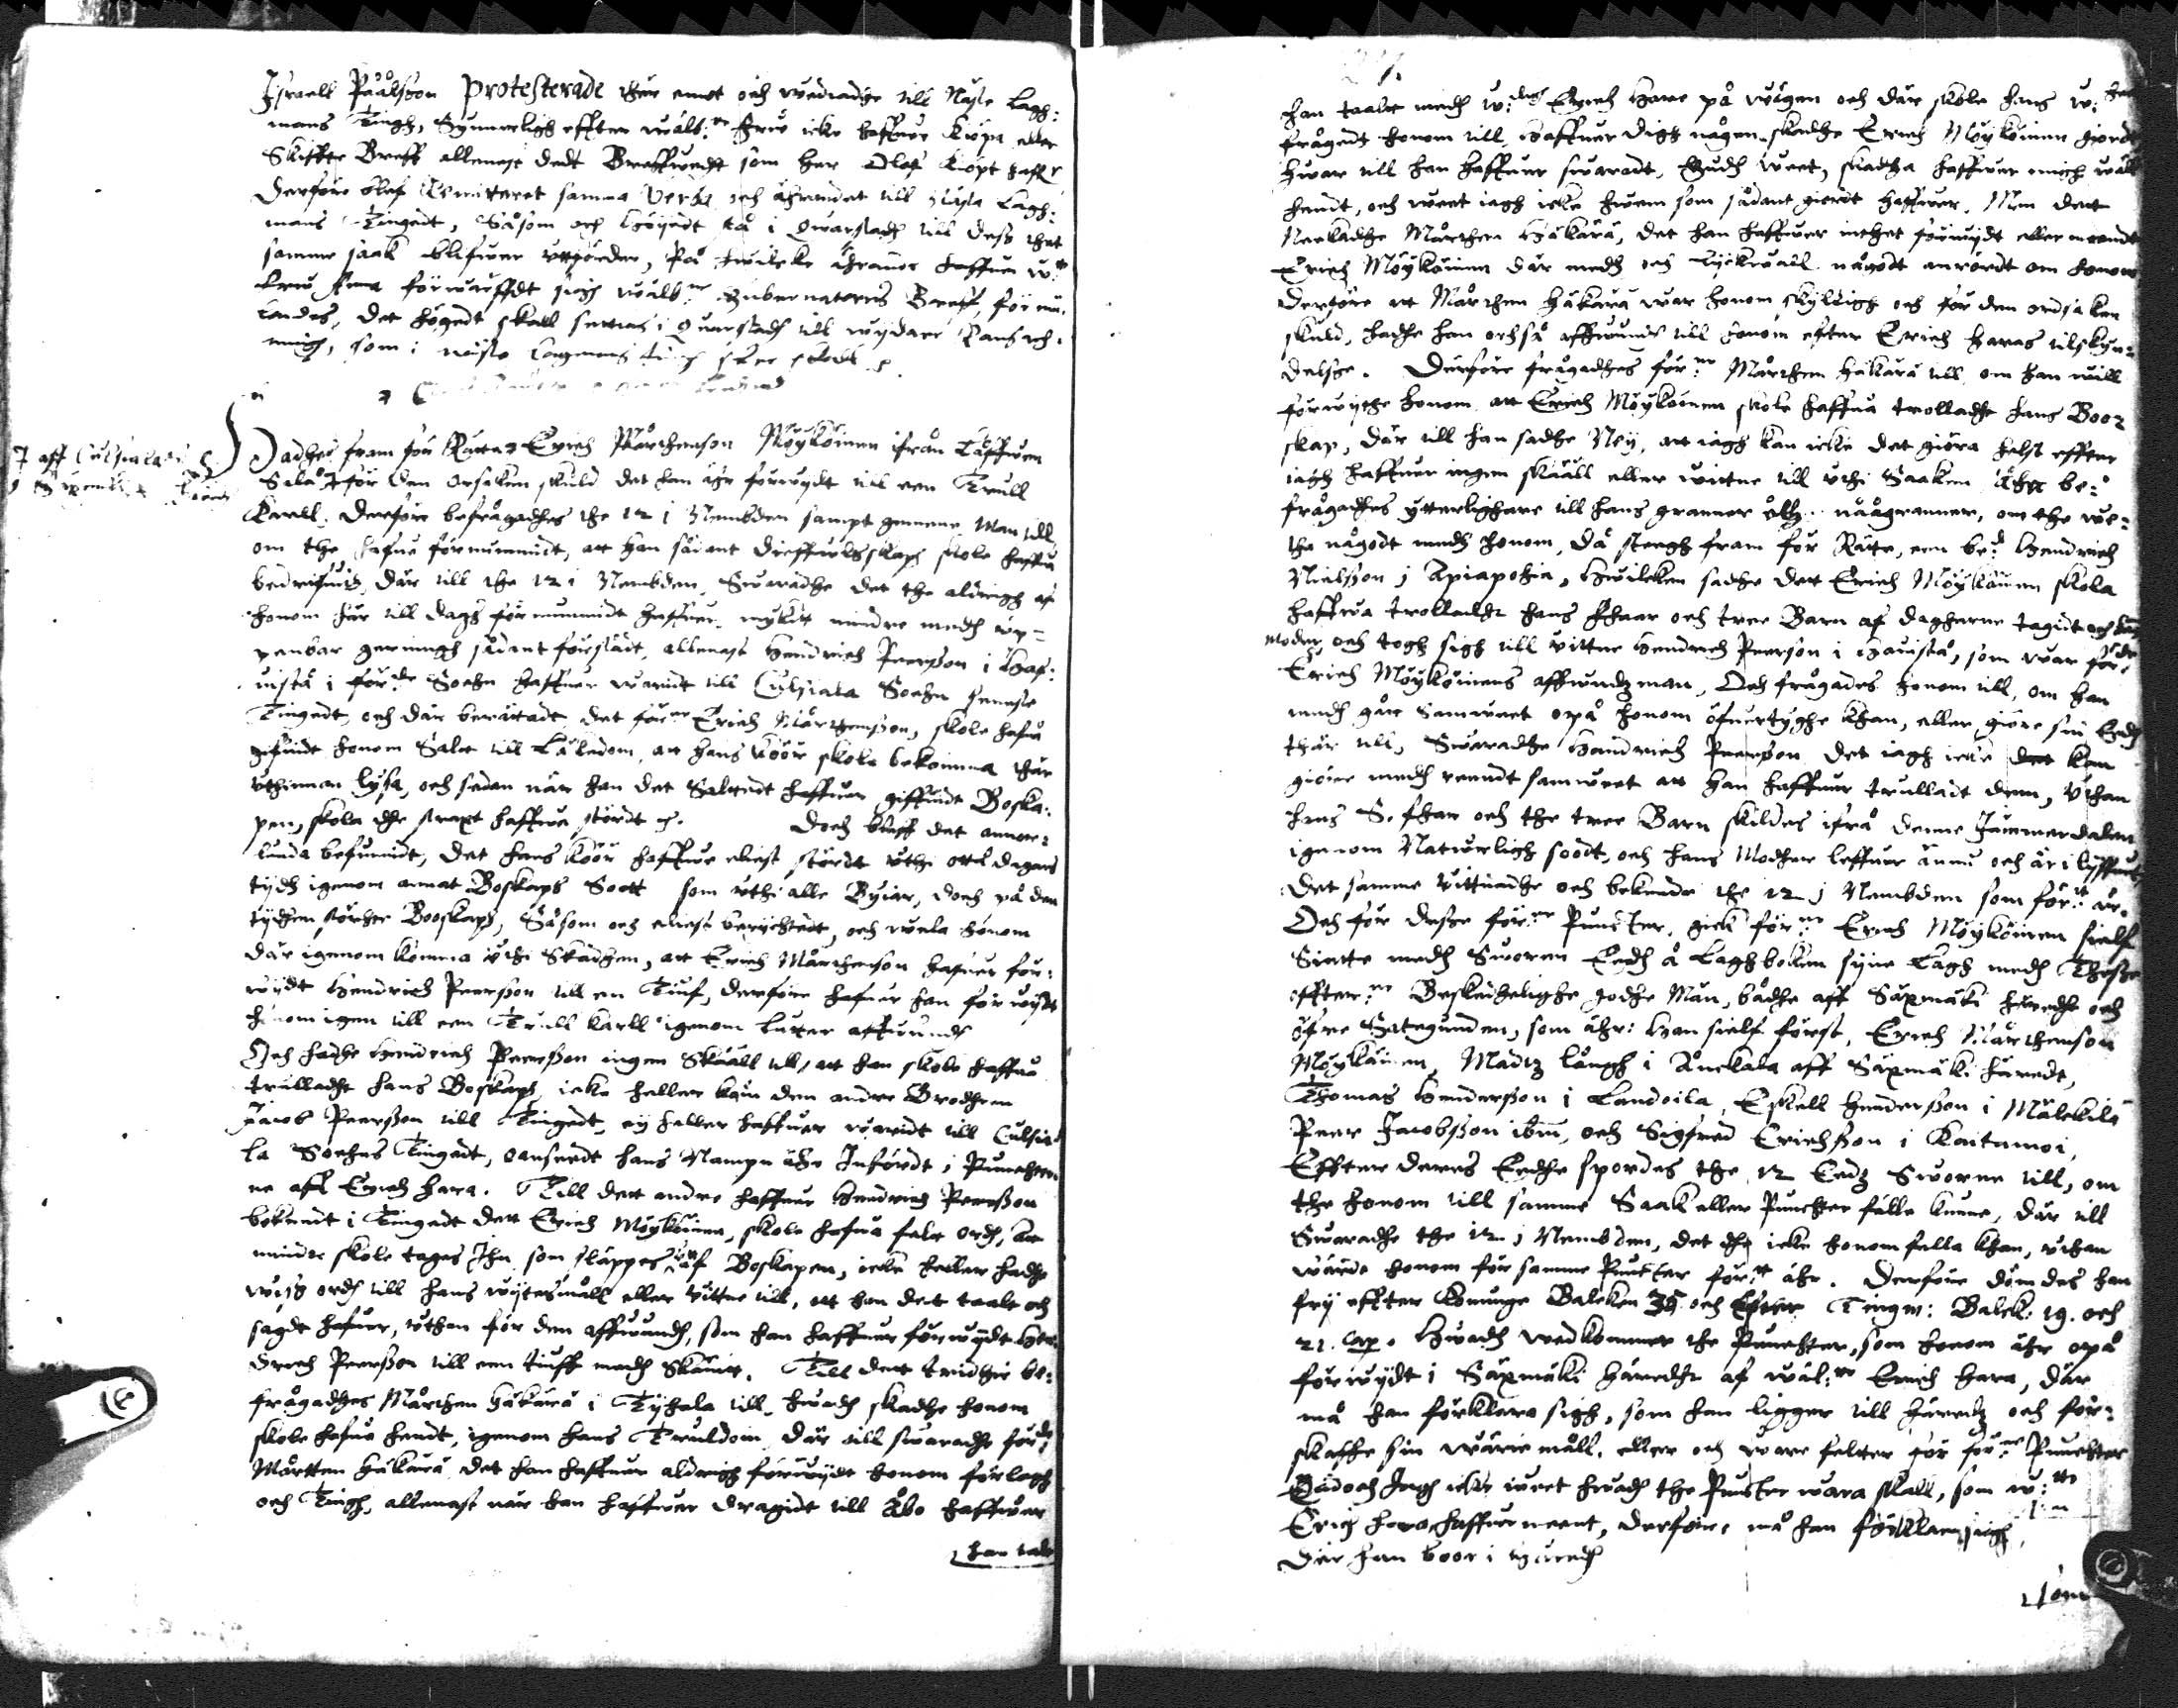 Israell Påålsson Protesterade ther emot och wediadhe till Näste Lagh:
mans Tingh, Synnerligh effter wälb:ne frw icke haffuer Köpe eller
Skiffte Breff allenast dedt Breffwedh som her Oloff Köpt haffr
Derföre bleff Remitteret samma och ährendet till Näste Lagh:
mans Tingedt, Såsom och Höijedt stå i Qwarstadh till dess thet
samme saak blifwer påå hwilcke ährande haffuer w:
frw Anna förwärffdt sigh wälb:ne Gubernatorns Breff, förmä:
landes, det högedt skall settias i Quarstadh till wydare Ransack:
ningh, som i näste Lagmans Ting skee skall
Dadhes fram för Rätta Erich Mårthenson Möyköinen ifrån Taffwen
Sala för den orsaken skuld det han ähr förwydt till een Trull
Karll. Derföre befrågadhes the 12 i Nembden sampt gemene Man till,
om the hafue förnummidt, att han sådant dieffwulsskap skole haffua
bedrifuidt, där till the 12 i Nembden Swaradhe det the aldrigh af
honom här till dags förnummidt haffuer, mykitt mindre medh up=
penbar gerningh sådant förstådt, allenast Hendrich Peersson i Haf:
uistå i för:de Sochn haffuer warit till Culsiala Sochn seneste
Tingedt, och där berättadt, det för:ne Erich Mårthensson, skole hafua
gifuidt honom Salt till Läkedom, att hans Köör skole bekomma thär
uthinnan lysa, och sedan när han det Saltedt haffuer giffuidt Boska:
pen, skola dhe straxt haffua stördt &. Doch bleff det annor:
lunda befunnidt, det hans Köör haffue eliest stördt uthi dagars
tydh igenom annat Boskaps Soott som uthi alle Byiar, doch på den
tydhen störthe Booskap, Såsom och eliest berychtedt, och wela honom
där igenom komma uthi Skadhen, att Erich Mårthenson hafuer för:
wydt Hendrich Peersson till en Tiuf, derföre hafuer han förwydt
honom igen till een Trull karll igenom luter affwundh
Och hadhe Hendrich Peersson ingen Skääll till, att han skole haffua
trulladhe hans Boskap, icke heller kom den andre Brodhren
Jacob Peersson till Tingedt, ey heller haffuer warit till Culsia
la Sochns Tingedt, oansedt hans Nampn ähr Infördt i Punchter
ne aff Erich hara. Till dett andre haffuer Hendrich Peersson
bekendt i Tingedt det Erich Möykäinen, skole hafua falt ordh, än
mindre skole tages Ihn som släppes utaf Boskapen, icke heller hadhe
wiss ordh till hans wytesmåll eller vittne till, att han dett taalt och
sagdt hafuer, uthan för den affwundh, som han haffuer förwydt Hen
drich Peersson till een tiuff medh Skäuitt. Till dett tridhie be:
frågadhes Mårthen Häkärä i Tyhala till, hwadh skadhe honom
skole hafua hendt, igenom hans Truldom där till swaradhe för:de
Mårtten Häkärä det han haffuer aldrigh förwydt honom för lagh
och Tingh, allenast när han haffuer dragidt till Åbo haffwer
han talt
han taalt medh w: Erich Hare på wägen och där skole hans w:
frågadt honom till, haffuer digh någon skadhe Erich Möykäinen giordt
hwar till han haffuer swaredt, Gudh weet, skadha haffwer migh wäll
hendt, och weet iagh icke hwem som sådant giordt haffwer. Men dett
Neekadhe Mårthen Häkärä, det han haffwer inthet förwydt eller meendt
Erich Möykäinen där medh och någodt anrördt om honom
Derföre att Mårthen Häkärä war honom skyldigh och för den ordsaken
skuld, hadhe han ochså affwundh till honom efter Erich haras tilskyn:
delsse. Derföre frågadhes för:ne Mårthen Häkärä till om han will
förwythe honom att Erich Möykäinen skole haffua trolladhe hans Boo
skap, där till han sadhe Ney, att iagh kan icke det giöra helst effter
iagh haffuer ingen skiääll eller wittne till uthi Saaken Thr be:
frågadhes ytterlighare till hans granner näägranner, om the we:
the någodt medh honom, då steegh fram för Rätte, een be:d Hendrich
Nielsson i Apiapohia, hwilcken sadhe dett Erich Möykäinen skola
haffwa trolladhe hans Fhaar och tree Barn af dagherne tagidt och hans
moder, och togh sigh till vittne Hendrich Peerson i Hauistå, som war för:de
Erich Möykäinens affwundzman, Och frågades honom till, om han
medh gått Samweet opå honom öfuertyghe khan, eller giöre sin Eedh
thär till, Swaradhe Hendrich Peersson det iagh icke det kan
giöre medh reendt samweet att han haffuer trulladt dem, uthan
hans S. fhar och the tree Barn skildes ifrå denne Jämmerdalen
igenom Naturligh soodt, och hans Modher leffuer ännu och är i lyffuet
Det samme vittnadhe och bekende the 12 i Nembden som för:tt är.
Och för desse för:ne Puncter, giek för:ne Erich Möykäinen sielf
Siette medh Sworen Eedh å Laghboken syne Lagh medh Thesse
effter:ne Beskedhelighe godhe Män, bådhe aff Säxmäki häredhe och
öfre Sategunden, som ähr: han sielf först, Erich Mårthenson
Möykäinen, Madtz långh i Ånckala aff Säxmäki häredt,
Thomas Hendersson i Landoila, Eskell Hendersson i Mälckilä
Peer Jacobsson ibm, och Sigfred Erichsson i Kaitamoi,
Effter deres Eedhe spordes the 12 Eedz Sworne till, om
the honom till samme Saak eller Punchter fälle kunne, där till
Swaradhe the 12 i Nembden, det dhe icke honom felle khan, uthan
wärde honom för samme Puncter för:tt ähr. Derföre dömdes han
fry effter Konunge Balcken 35. och Efter Tingm: Balck: 19. och
21. Cap. Hwadh wedkommer the Punchter, som honom ähr opå
förwydt i Säxmäki häredhe af wäl:ne Erich hara, där
må han förklara sigh, som han ligger till häredz och för:
skaffe sin wärie måll, eller och ware felter för för:ne Punchter
Endoch Iagh icke weet hwadh the Puncter wara skall, som w:
Erich hara haffuer meent, derföre må han förklara sigh,
där han boor i häredh